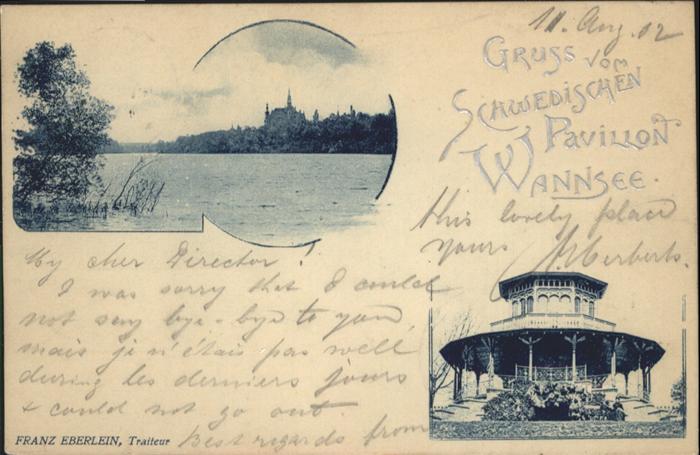 11. Aug. 02
GRUSS VOM
SCHWEDISCHEN
PAVILLON
WANNSEE.
My cher Director!
I was sorry that I could
not say bye-bye to you,
mais je n'étais pas well
during les derniers jours
& could not go out.
Best regards from
this lovely place
yours Herberts.
FRANZ EBERLEIN, Traiteur